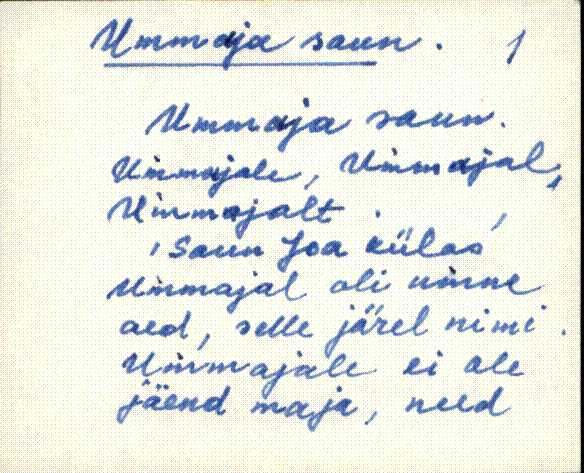 Ummaja saun. 1
Ummaja saun.
Ummajale, Ummajal,
Ummajalt.
'Saun Joa külas'
Ummajal oli umne
aed, selle järel nimi.
Ummajale ei ole
jäend maja, need